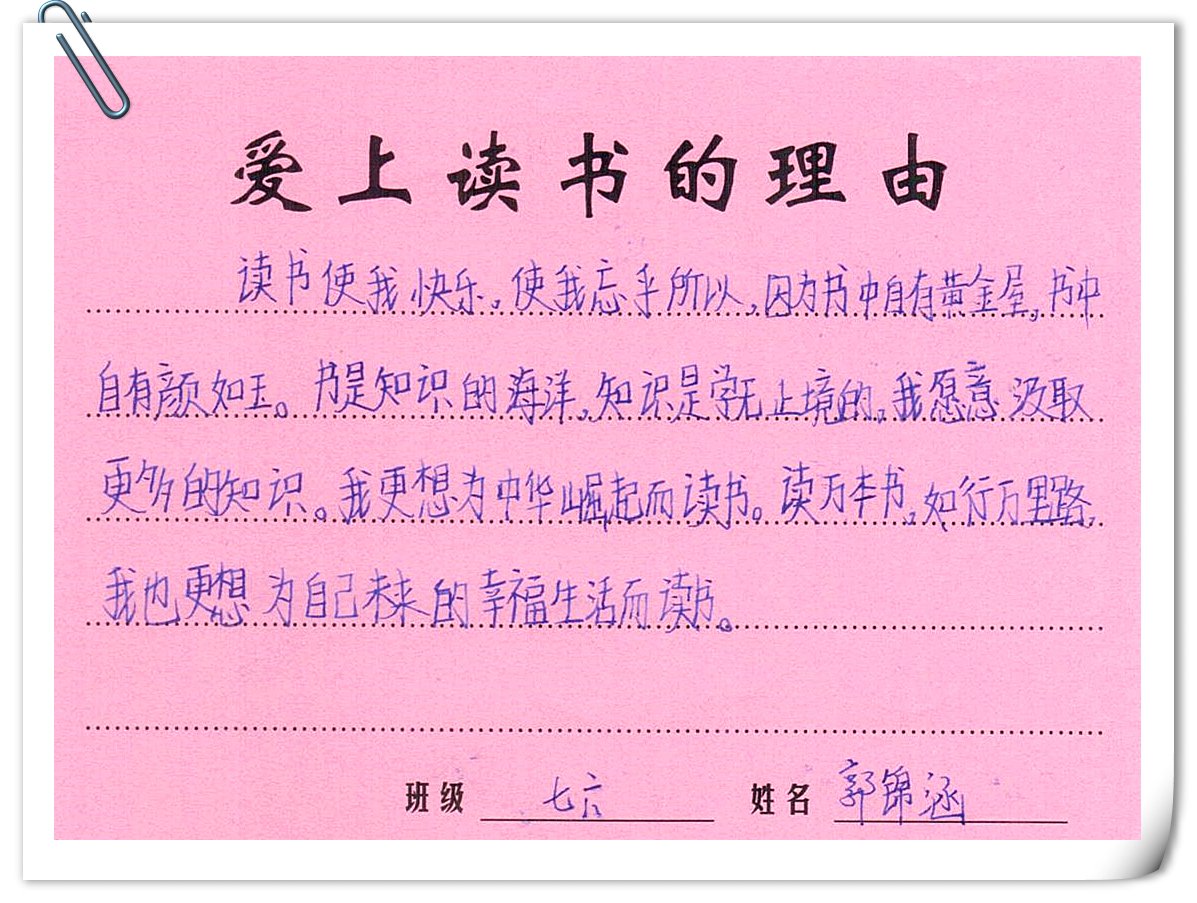 爱上读书的理由
读书使我快乐。使我忘乎所以，因为书中自有黄金屋，书中
自有颜如玉。书是知识的海洋，知识是学无止境的，我愿意汲取
更多的知识。我更想为中华崛起而读书。读万本书，如行万里路，
我也更想为自己未来的幸福生活而读书。
班级 七六 姓名 郭锦涵